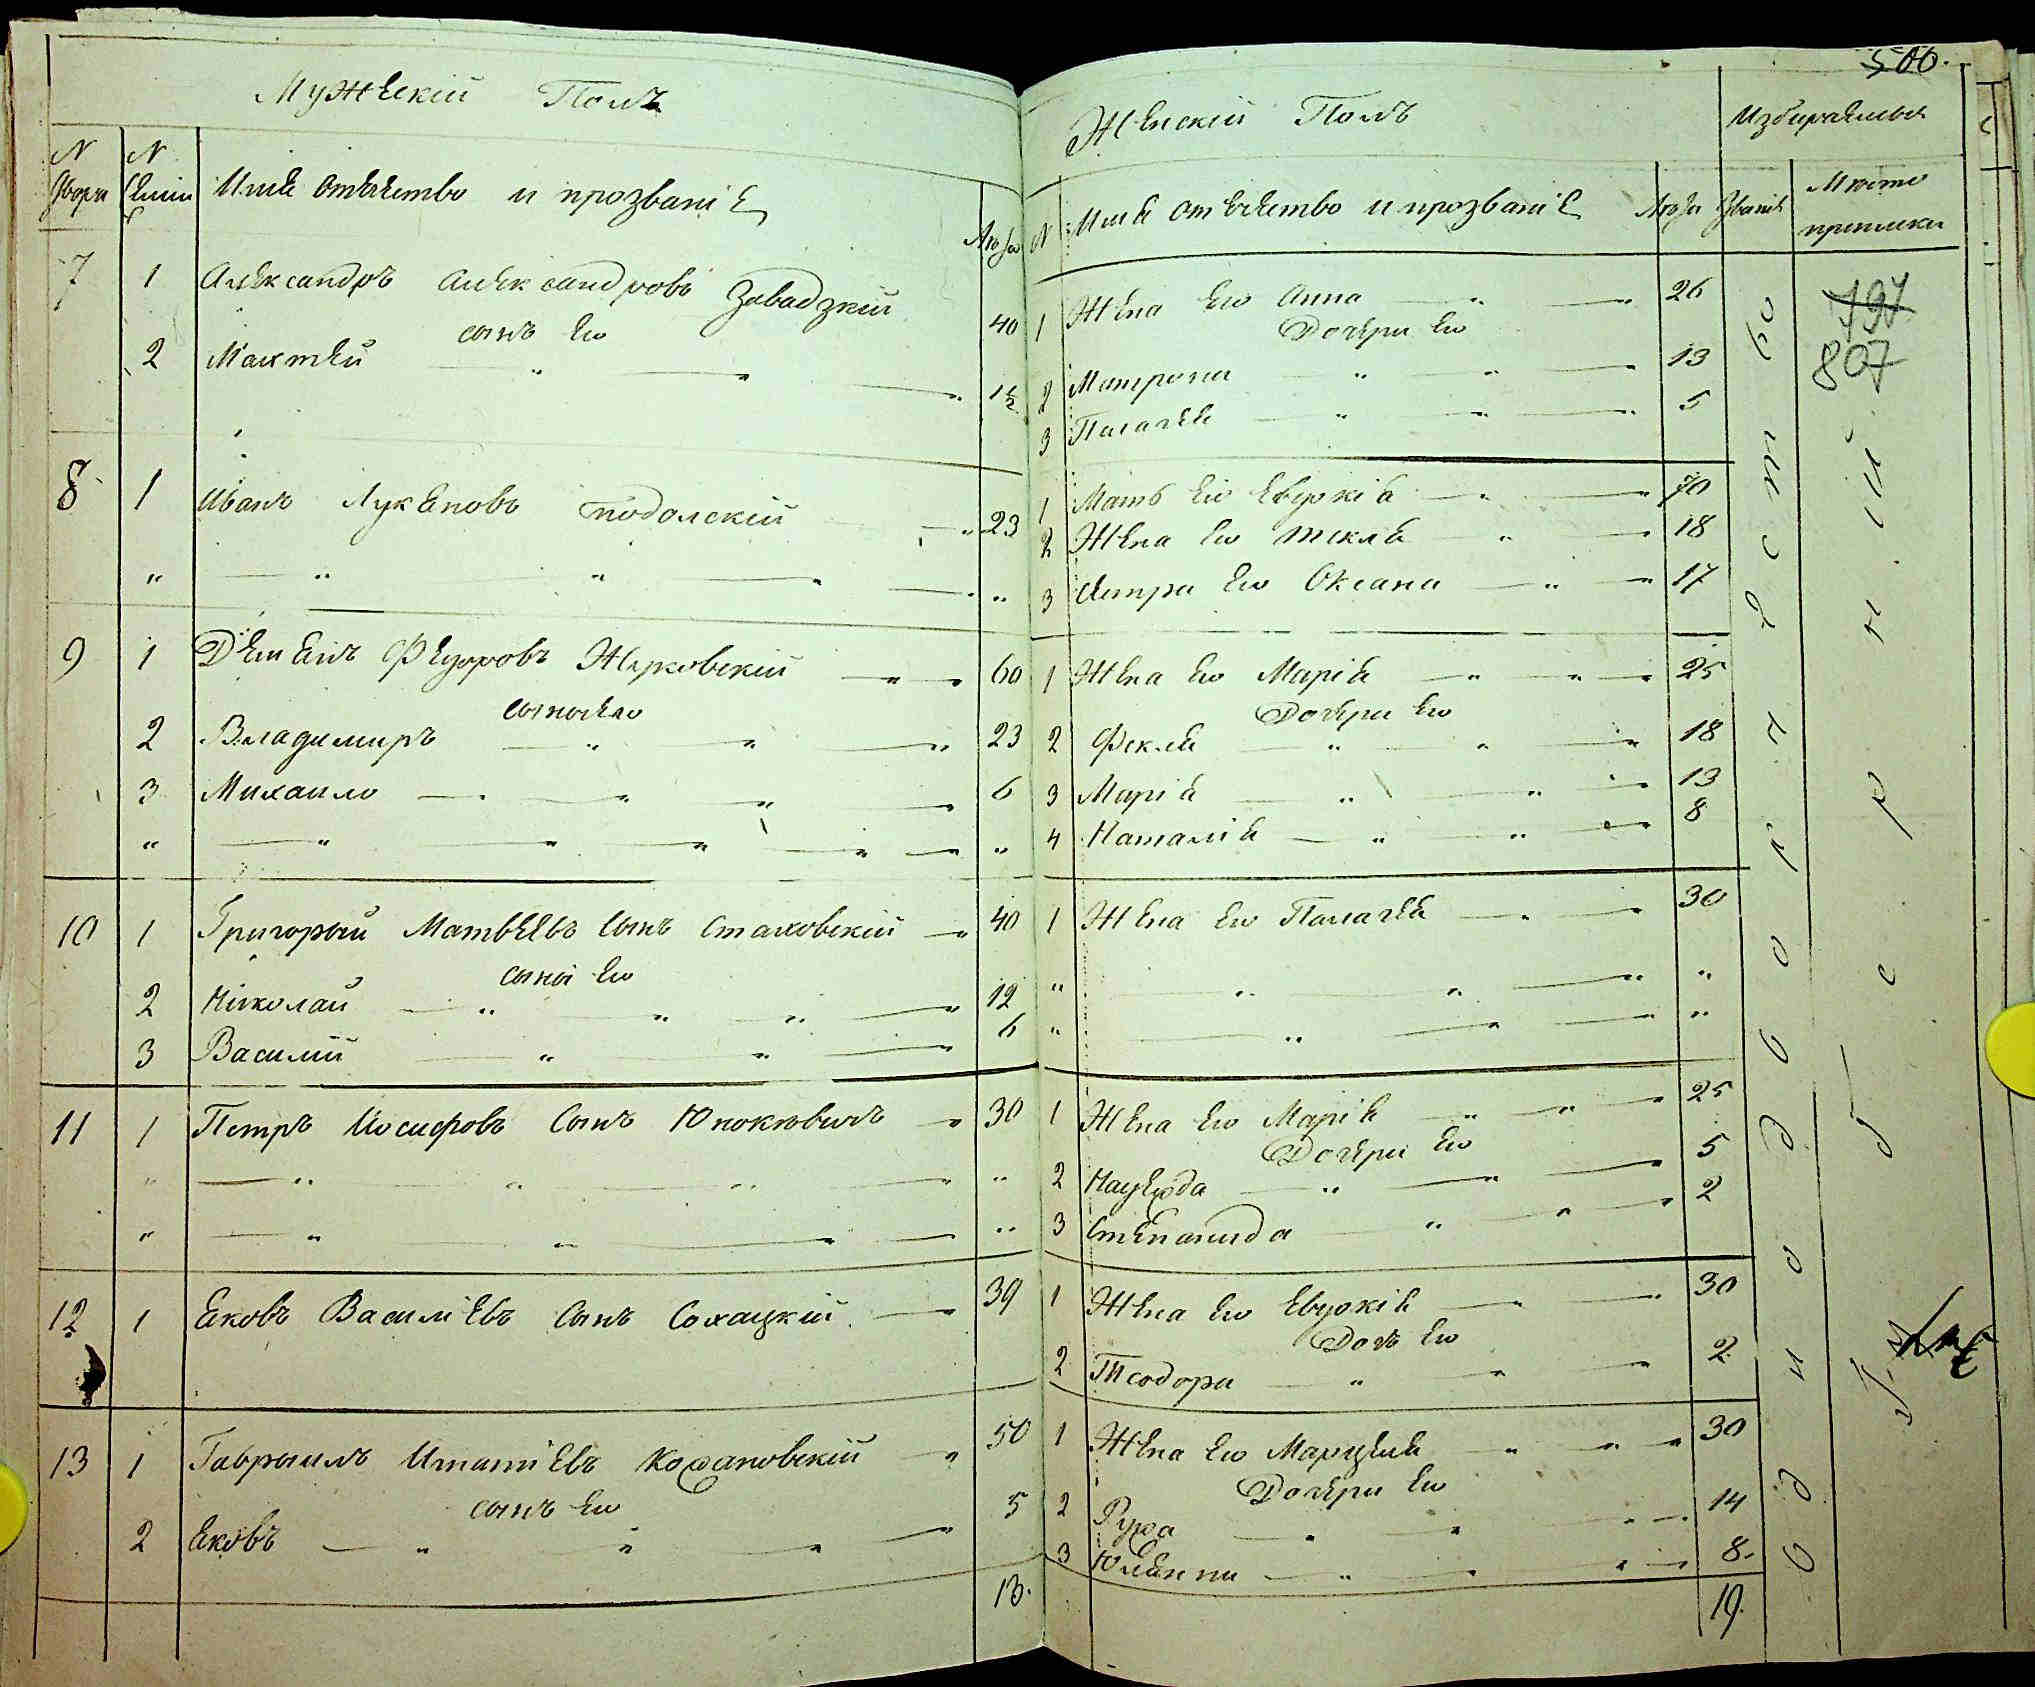 Мужескій Полъ
N двора N семіи Имя отечество и прозваніе Лѣта
7 1 Александръ Александровъ Завадзкій 40
сынъ его
2 Мактей 1½
8 1 Иванъ Лукяновъ Подолскій 23
9 1 Демянъ Федоровъ Жуковскій 60
сыны его
2 Владимиръ 23
3 Михаило 6
10 1 Григорый Матвеевъ сынъ Стаховскій 40
сыны его
2 Николай 12
3 Василий 6
11 1 Петръ Иосифовъ Сынъ 30
12 1 Яковъ Василіевъ Сынъ Сохацкій 39
13 1 Гаврыилъ Игнатіевъ Кожановскій 50
сынъ его
2 Яковъ 5
13.
500.
Женскій Полъ
N Имя отечество и прозваніе Лѣта Званія Мѣсто приписки
1 Жена его Анна 26
Дочери его
2 Матрона 13
3 Палагея 5
1 Мать его Евдокія 70
2 Жена его Текля 18
3 Сестра его Оксана 17
1 Жена его Марія 25
Дочери его
2 Фекля 18
3 Марія 13
4 Наталія 8
1 Жена его Палагея 30
1 Жена его Марія 25
Дочери его
2 Надежда 5
3 Степанида 2
1 Жена его Евдокія 30
Дочь его
2 Теодора 2
1 Жена его Марцеля 30
Дочери его
2 Ружа 14
3 Юлянна 8.
19.
797
807
однодворчество